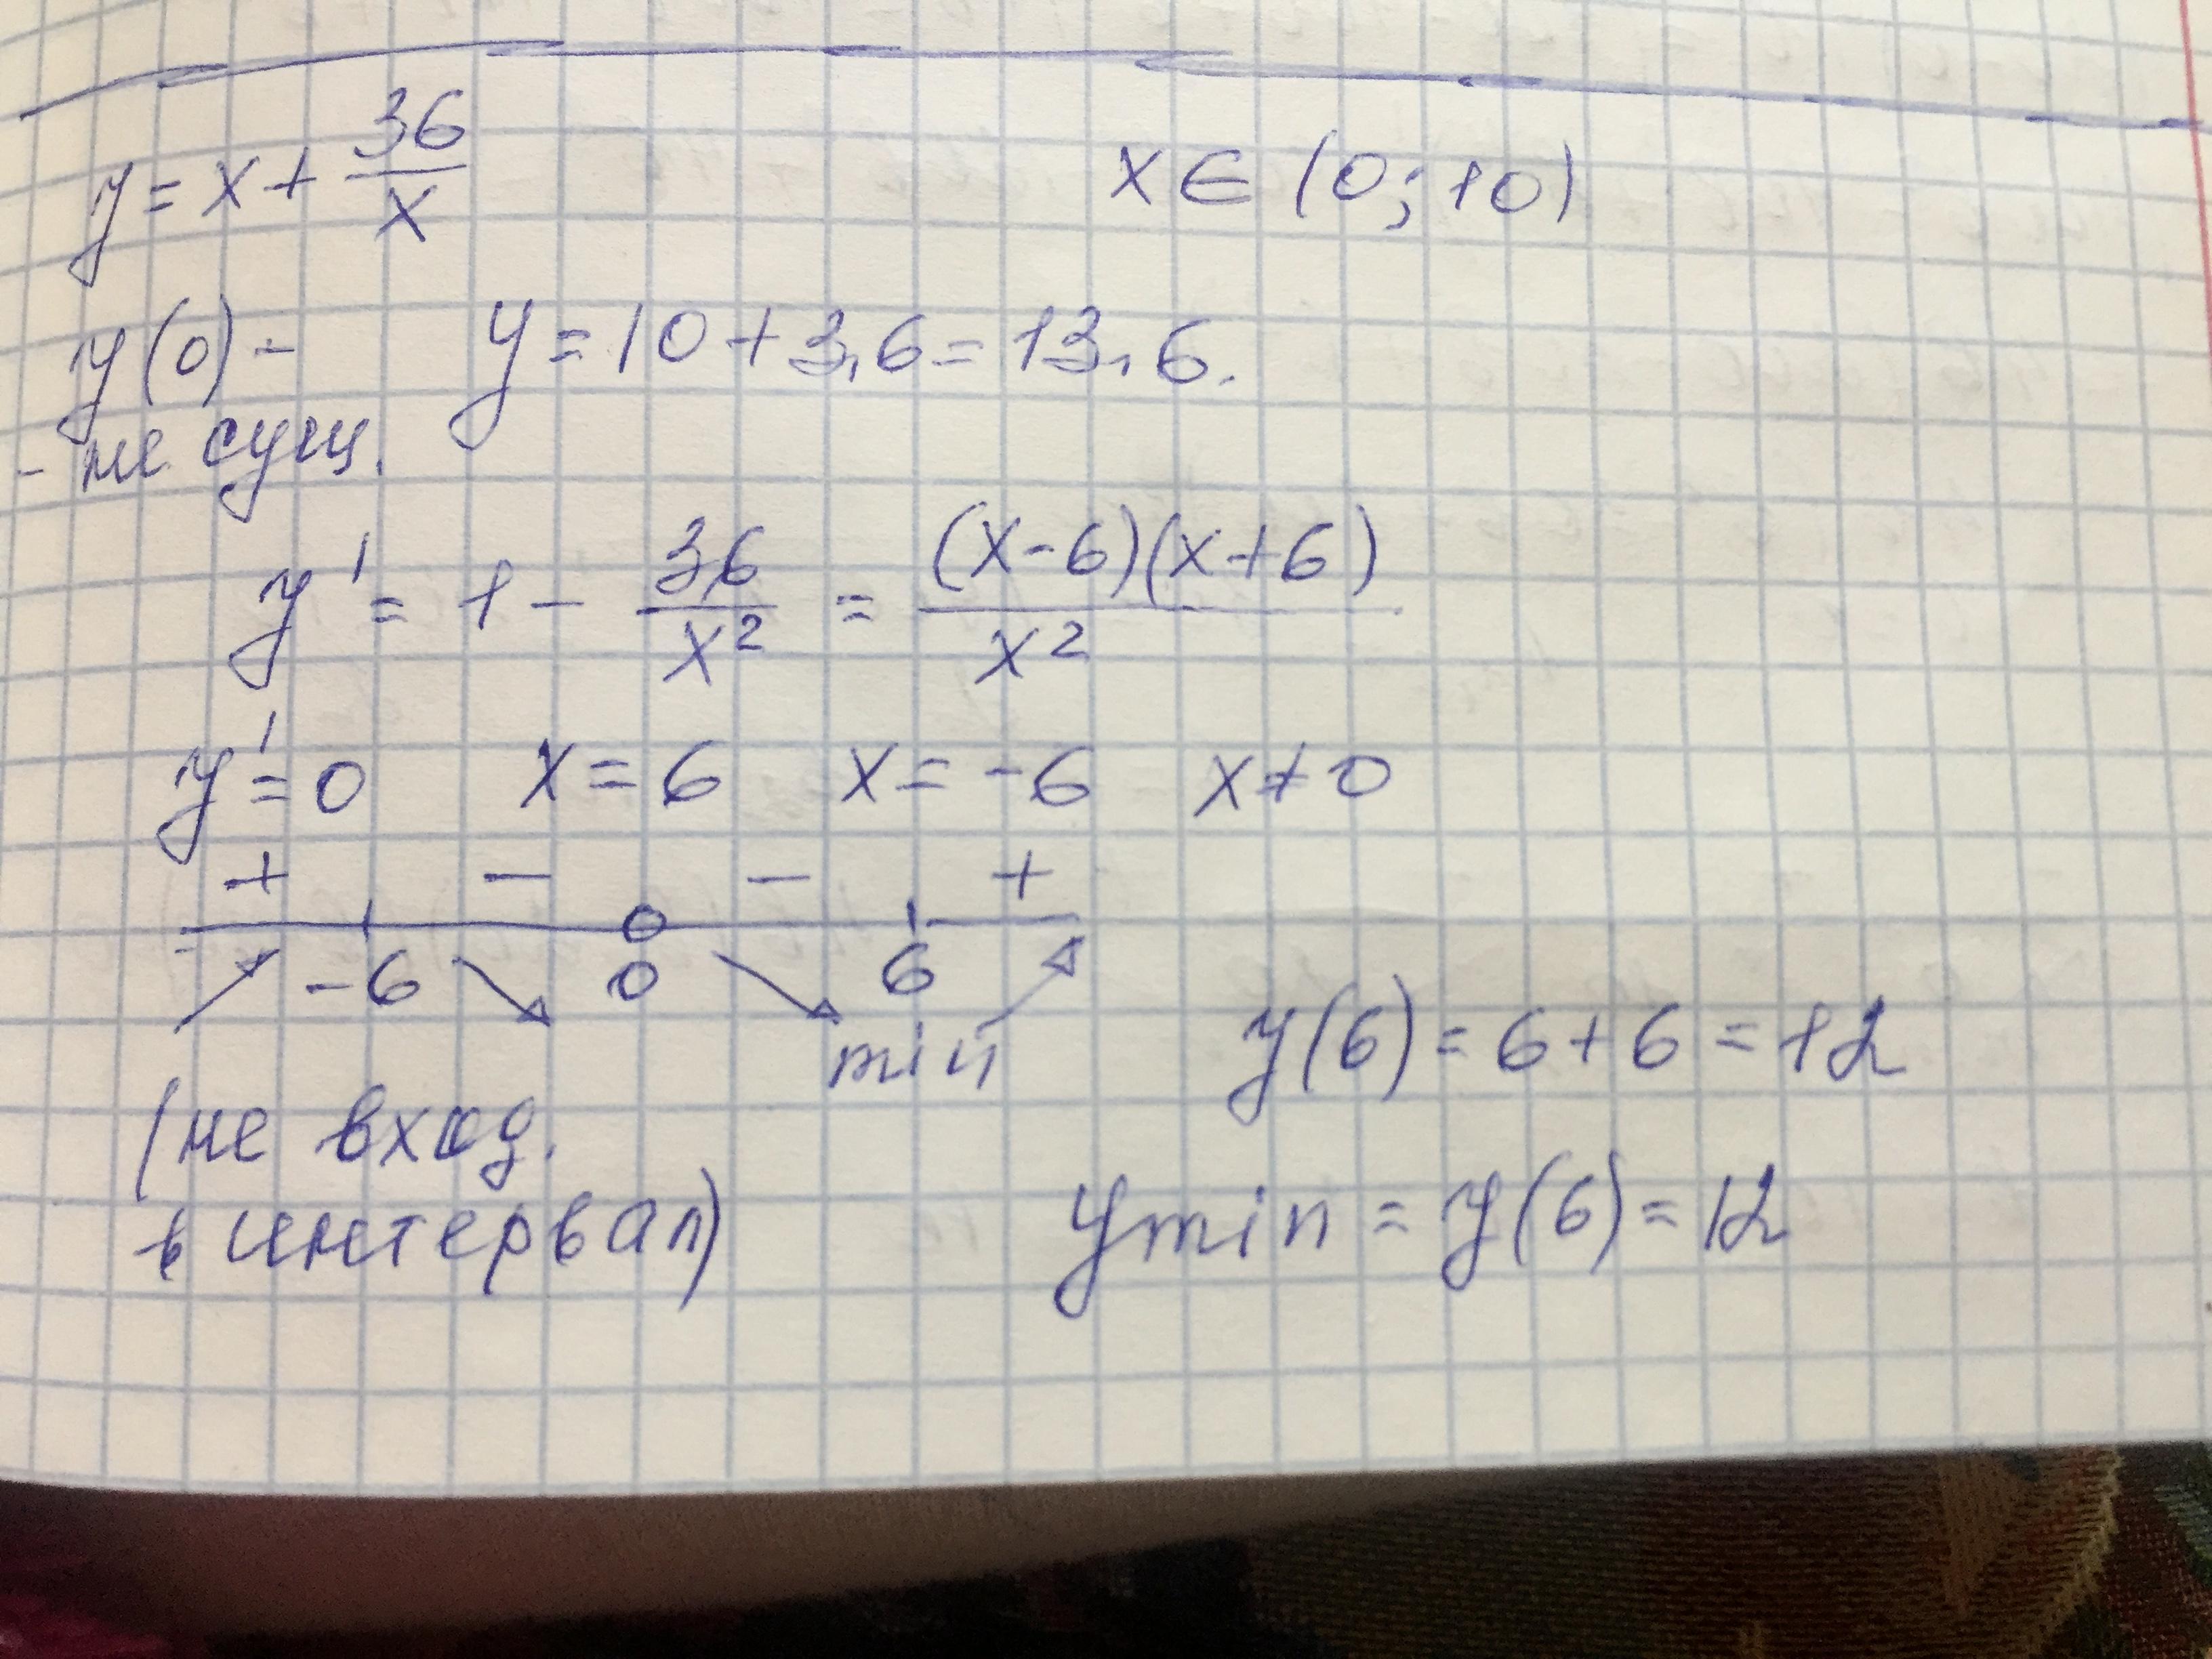 y = x + 36/x    x ∈ (0; 10)
y(0) -    y = 10 + 3,6 = 13,6.
- не сущ.
y' = 1 - 36/x² = (x-6)(x+6)/x²
y' = 0    x = 6    x = -6    x ≠ 0
+ - - +
-6 0 6
min    y(6) = 6 + 6 = 12
(не вход.
в интервал)    ymin = y(6) = 12